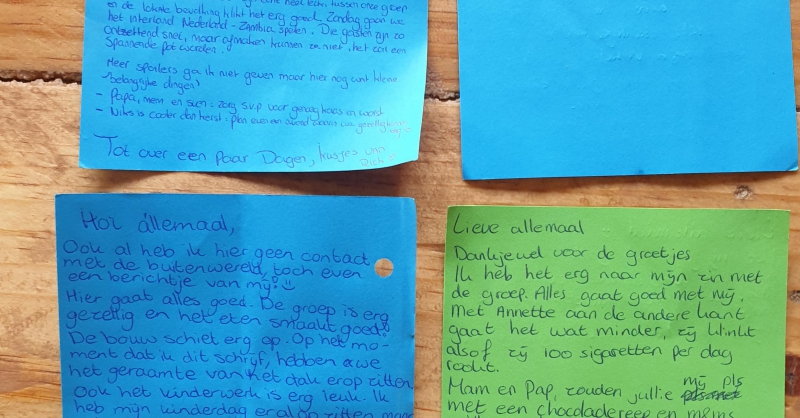 en de lokale bevolking klikt het erg goed. Zondag gaan we
het interland Nederland - Zambia spelen. Die gasten zijn zo
ontzettend snel, maar afmaken kunnen ze niet, het kan een
spannende pot worden.
Meer spoilers ga ik niet geven maar hier nog wat kleine
belangrijke dingen:
- Papa, mam en sien: zorg s.v.p voor genoeg kaas en worst
- Niks is cooler dan herst: plan even een avond
Tot over een paar Dagen, kusjes van
Hoi allemaal,
Ook al heb ik hier geen contact
met de buitenwereld, toch even
een berichtje van mij!
Hier gaat alles goed. De groep is erg
gezellig en het eten smaakt goed!
De bouw schiet erg op. Op het mo-
ment dat ik dit schrijf, hebben we
het geraamte van het dak erop zitten.
Ook het kinderwerk is erg leuk. Ik
heb mijn kinderdag er al op zitten, maar
Lieve allemaal
Dankjewel voor de groetjes
Ik heb het erg naar mijn zin met
de groep. Alles gaat goed met mij.
Met Annette aan de andere kant
gaat het wat minder, zij klinkt
alsof zij 100 sigaretten per dag
rookt.
Mam en Pap, zouden jullie mij pls
met een chocoladereep en